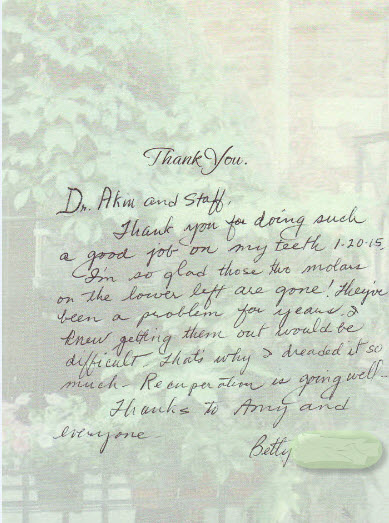 Thank You.
Dr. Akin and Staff,
Thank you for doing such
a good job on my teeth 1-20-15.
I'm so glad those two molars
on the lower left are gone! They've
been a problem for years. I
knew getting them out would be
difficult that's why I dreaded it so
much - Recuperation is going well -
Thanks to Amy and
everyone
Betty